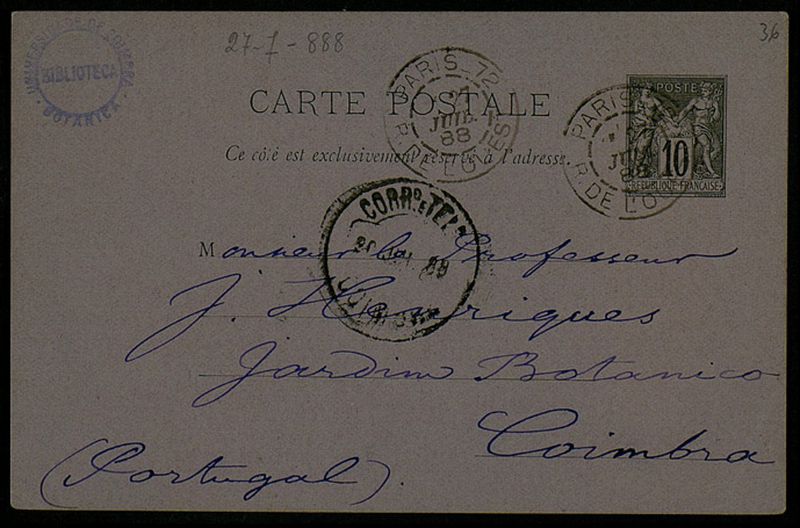 UNIVERSIDADE DE COIMBRA
BIBLIOTECA
BOTANICA
27-7-888
36
CARTE POSTALE
Ce côté est exclusivement réservé à l'adresse.
PARIS 72
27
JUIL
88
R. DE L'
PARIS
88
R. DE L'
POSTE
10
REPUBLIQUE FRANÇAISE
CORR.º E TEL
88
COIMBRA
Monsieur le Professeur
J. Henriques
Jardim Botanico
Coimbra
(Portugal)